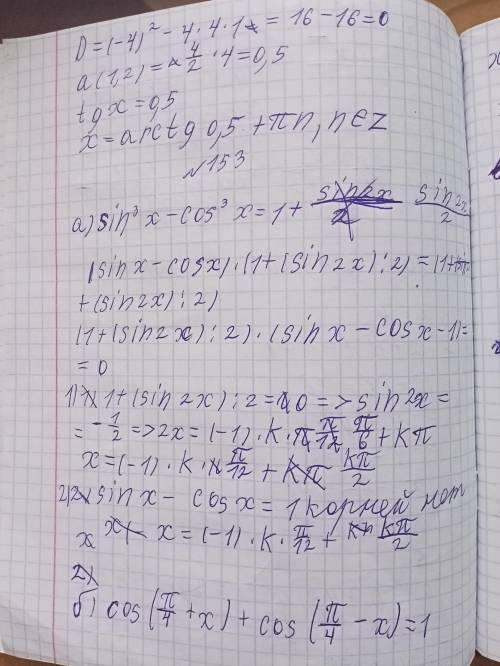 D=(-4)² - 4·4·1 = 16-16=0
a(1,2)= 4/2·4=0,5
tg x=0,5
x=arctg 0,5+πn, n∈z
№153
а) sin³x-cos³x=1+ sin2x/2
(sinx-cosx)·(1+(sin2x):2)=(1+
+(sin2x):2)
(1+(sin2x):2)·(sinx-cosx-1)=
=0
1) 1+(sin2x):2=0=>sin2x=
=-1/2=>2x=(-1)·k·π/6+kπ
x=(-1)·k·π/12+kπ/2
2) sinx-cosx=1 корней нет
x x=(-1)·k·π/12+kπ/2
б) cos(π/4+x)+cos(π/4-x)=1